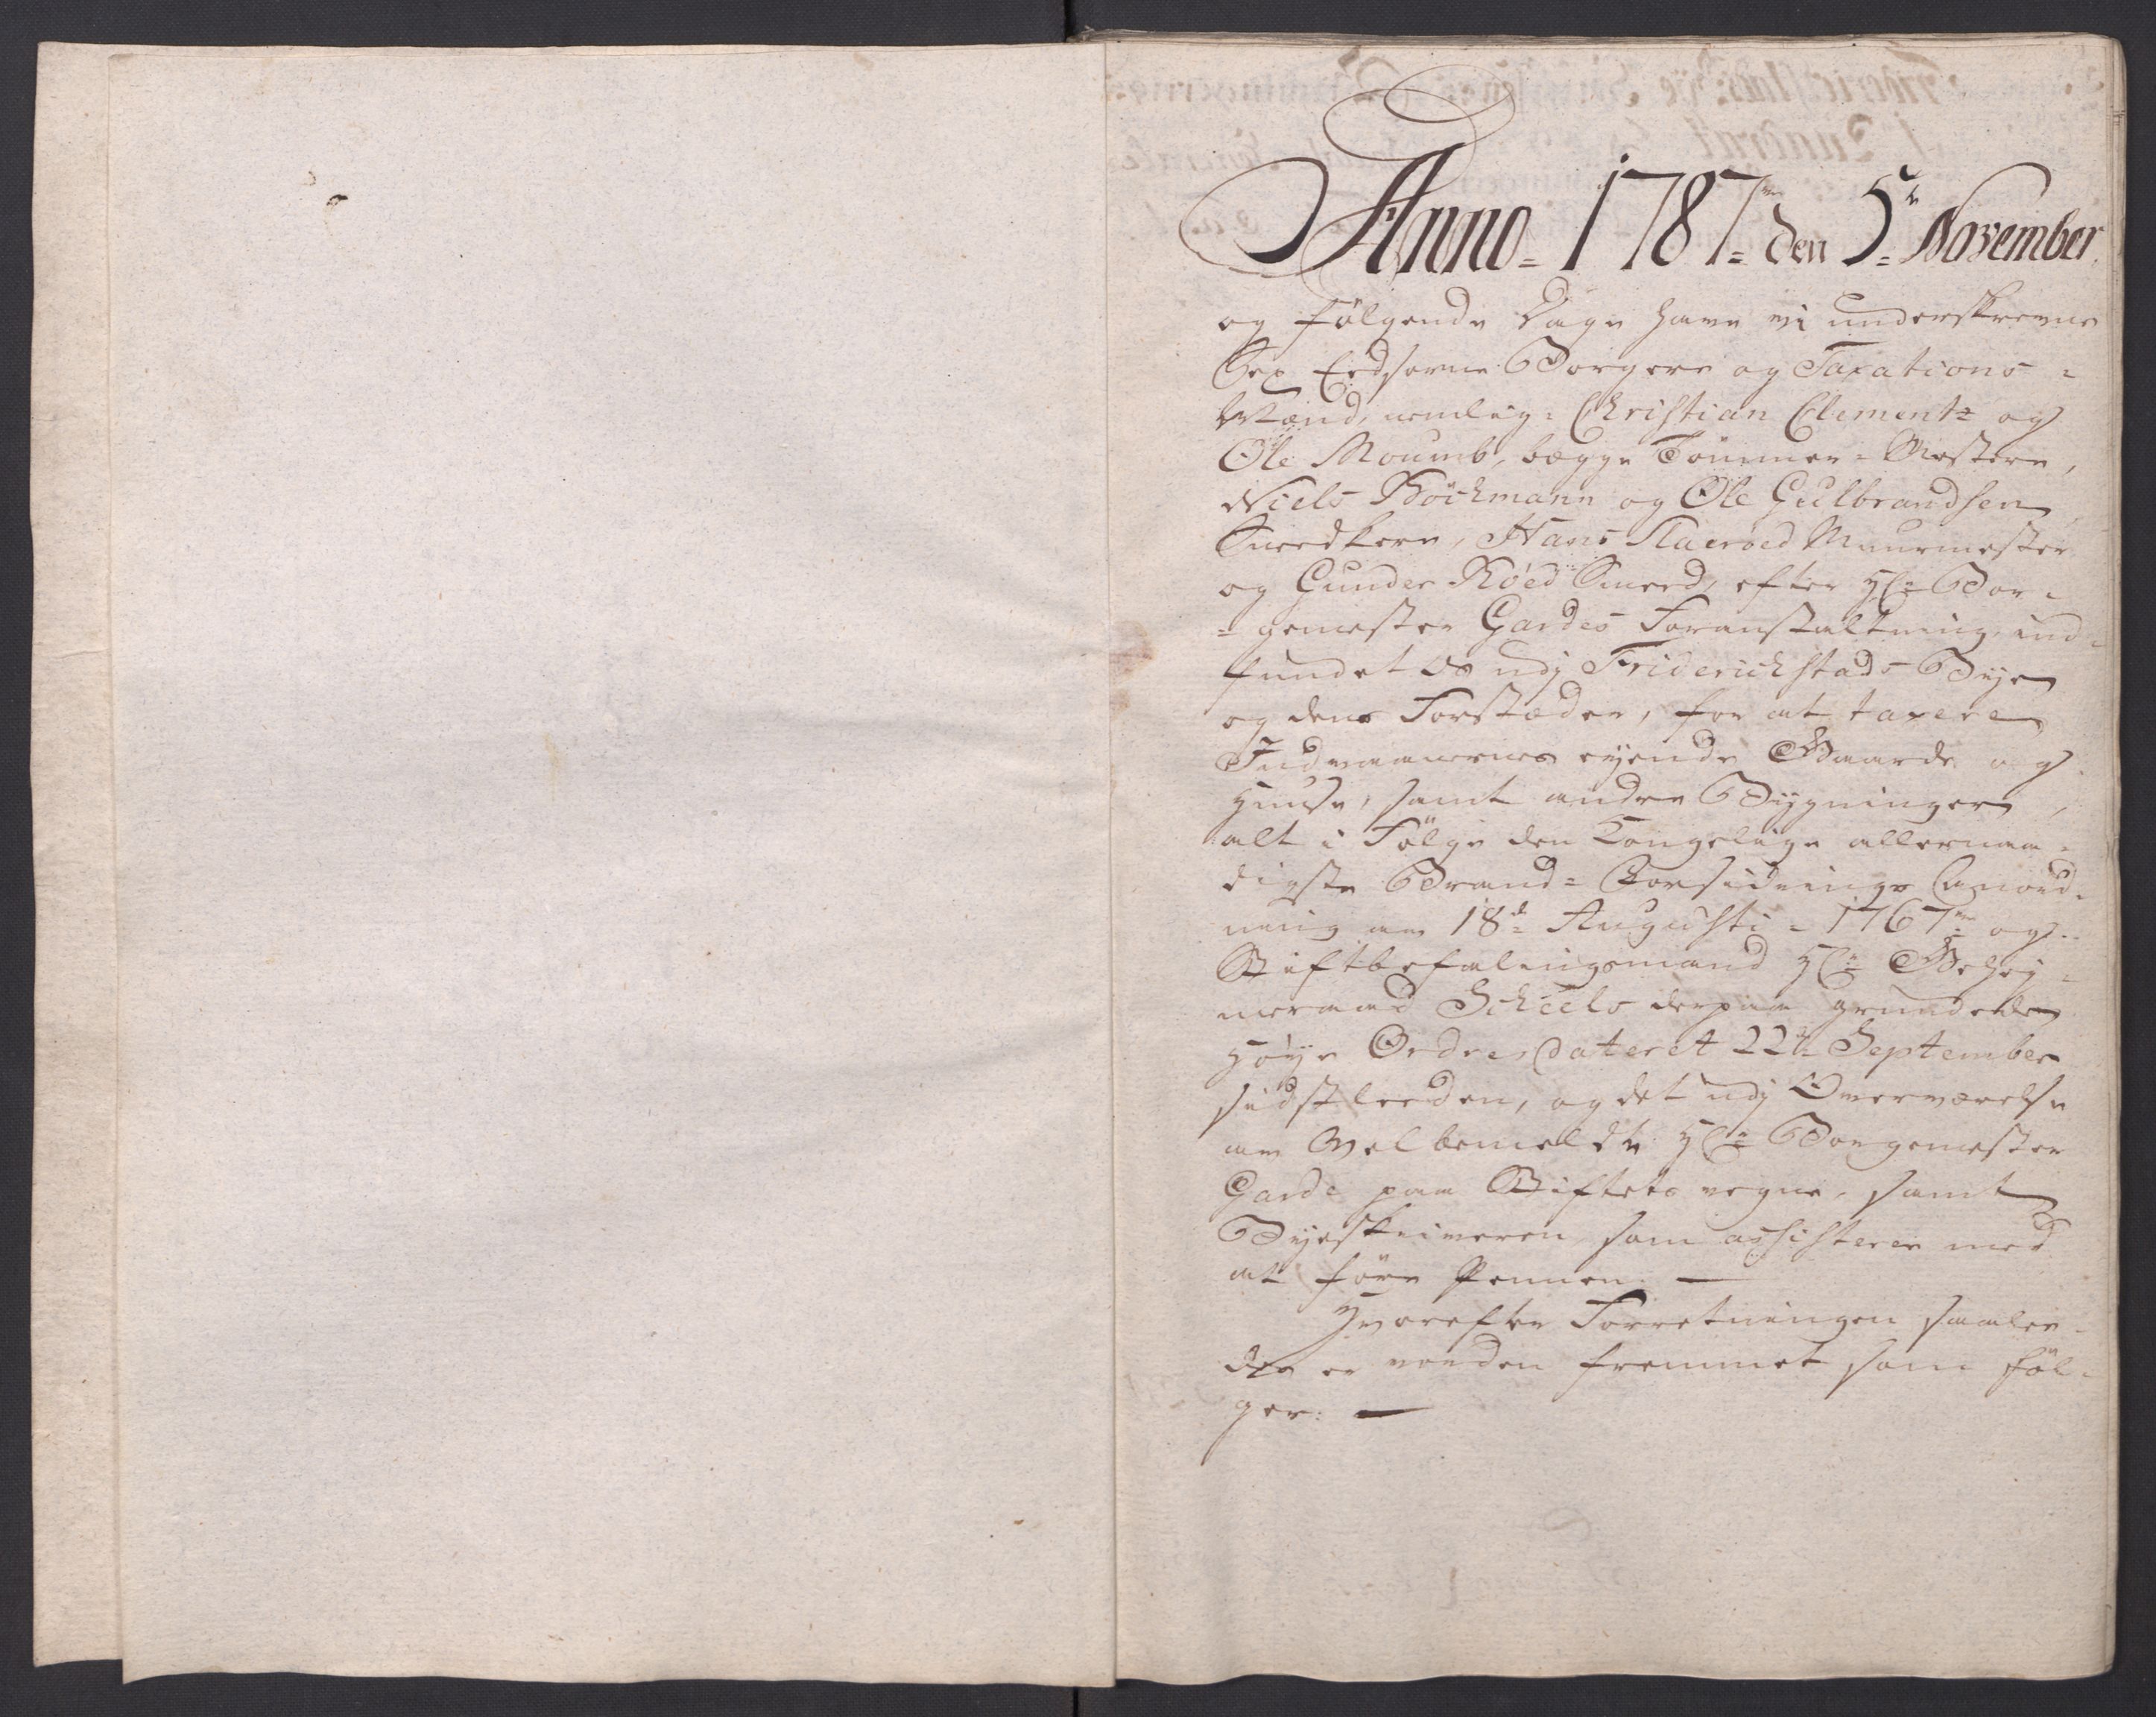 Anno 1787 den 5te November
og følgende Dage have vi underskrevne
Sex Eedsorne Borgere og Taxations-
Mænd, nemlig: Christian Clementz og
Ole Moumb, begge Tømmer-Mestere,
Niels Böckmann og Ole Gulbrandsen
Sneedkere, Hans Muurmester
og Gunder Röed Smed, efter Hr: Bor-
=gemester Gardes Foranstaltning, ind-
fundet os udj Friderichstads Bye
og dens Forstæder, for at taxere
Indvaanernes eyende Gaarde og
Huuse, samt andre Bygninger,
alt i Følge den Kongelige allernaa-
digste Brand-Forsikrings Anord-
ning av 18de Augusti 1767 og
Stiftbefalingsmand Hr: Gehej-
meraad Scheels derpaa grundede
Høye Ordre dateret 22de September
sidstleeden, og det udj Overværelse
av Velbemeldte Hr: Borgemester
Garde paa Stiftets vegne, samt
Byeskriveren som assisterer med
at føre Pennen. —
Hvorefter Forretningen saale-
des er vorden fremmet som føl-
ger: —